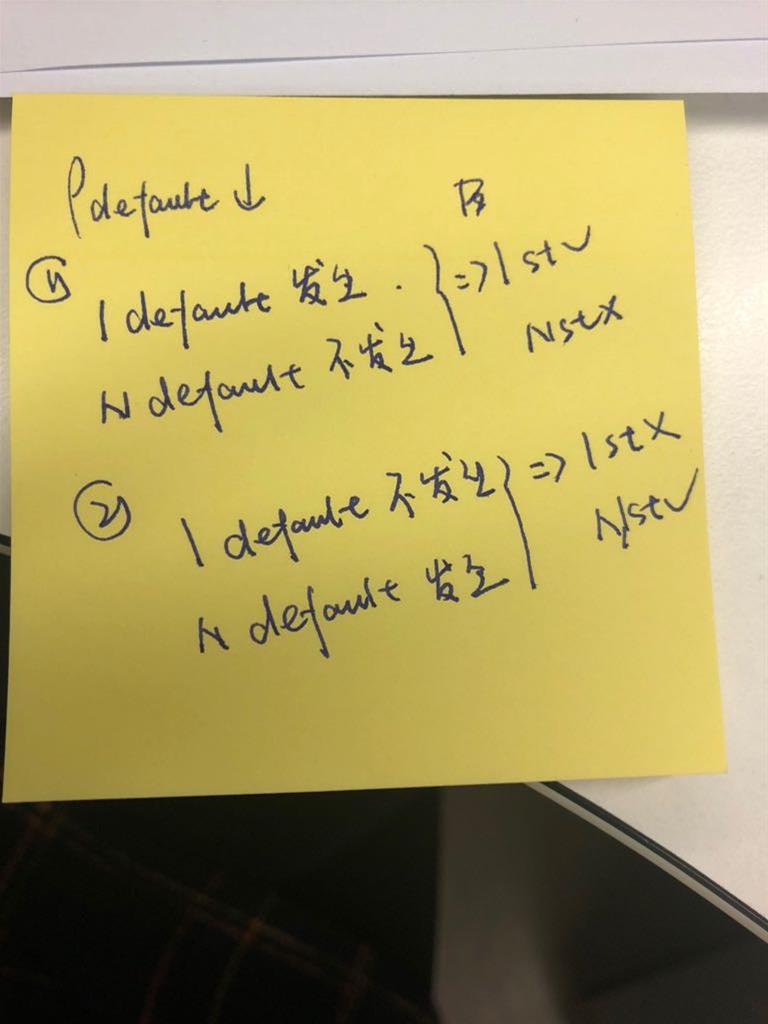 ρ default ↓
① 1 default 发生. } => 1st ✓
N default 不发生 Nst ×
② 1 default 不发生 } => 1st ×
N default 发生 Nst ✓